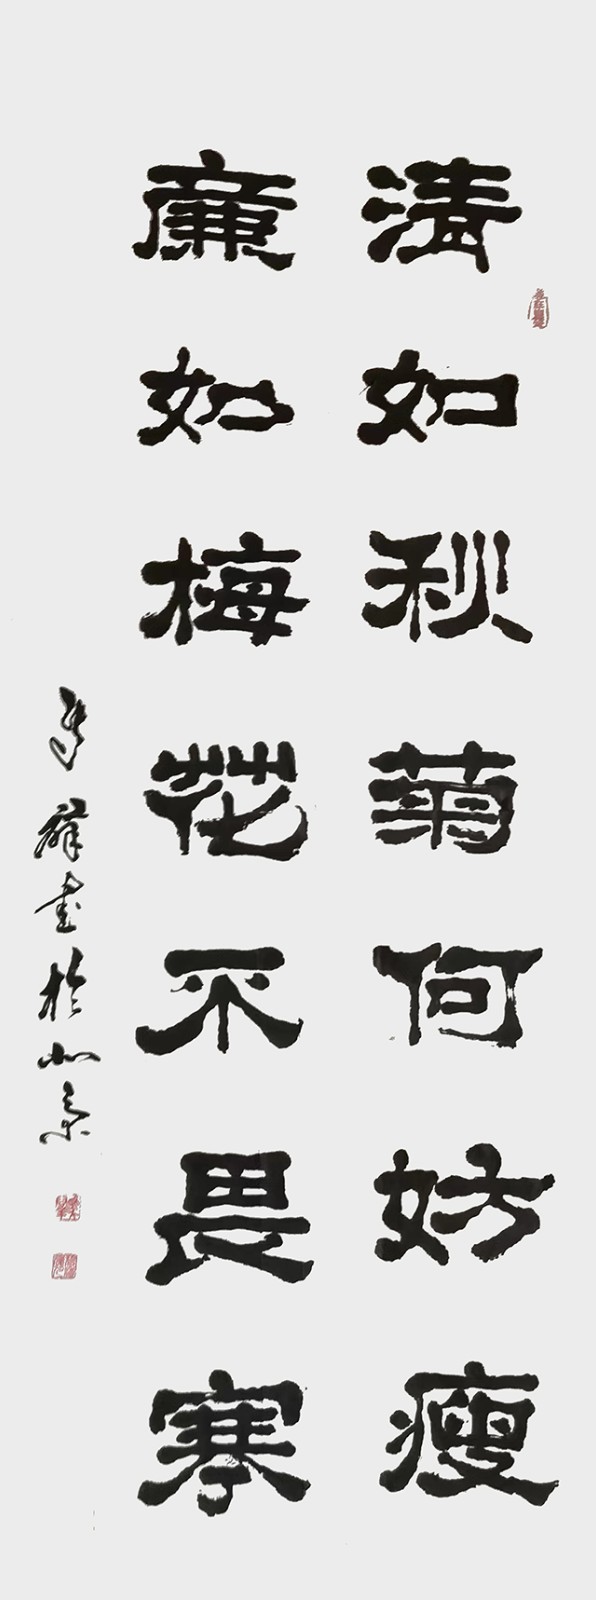 清如秋菊何妨瘦
廉如梅花不畏寒
群書於北京